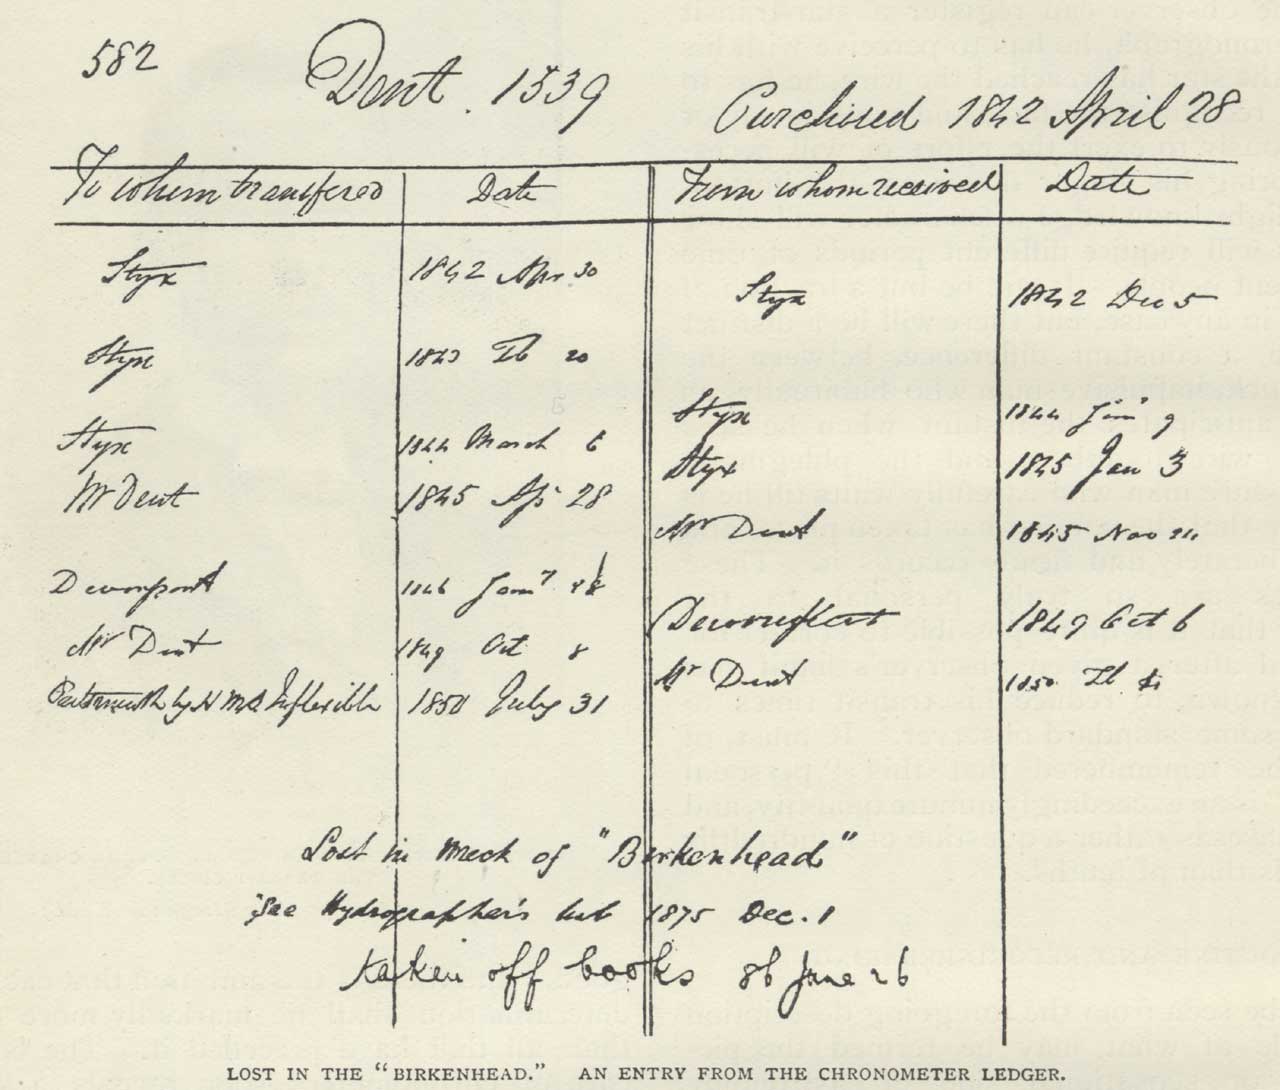 582
Dent 1539
Purchased 1842 April 28
To whom transfered Date From whom received Date
Styx 1842 Apr 30
Styx 1842 Dec 5
Styx 1843 Feb 20
Styx 1844 Jany 9
Styx 1844 March 6
Styx 1845 Jan 3
Mr Dent 1845 Ap 28
Mr Dent 1845 Nov
Devonport 1846 Jany
Devonport 1849 Oct 6
Mr Dent 1849 Oct 8
Mr Dent 1850 Feb
Portsmouth by H M S Inflexible 1850 July 31
Lost in Wreck of "Birkenhead"
See Hydrographer's 1875 Dec. 1
taken off books 86 June 26
LOST IN THE "BIRKENHEAD." AN ENTRY FROM THE CHRONOMETER LEDGER.